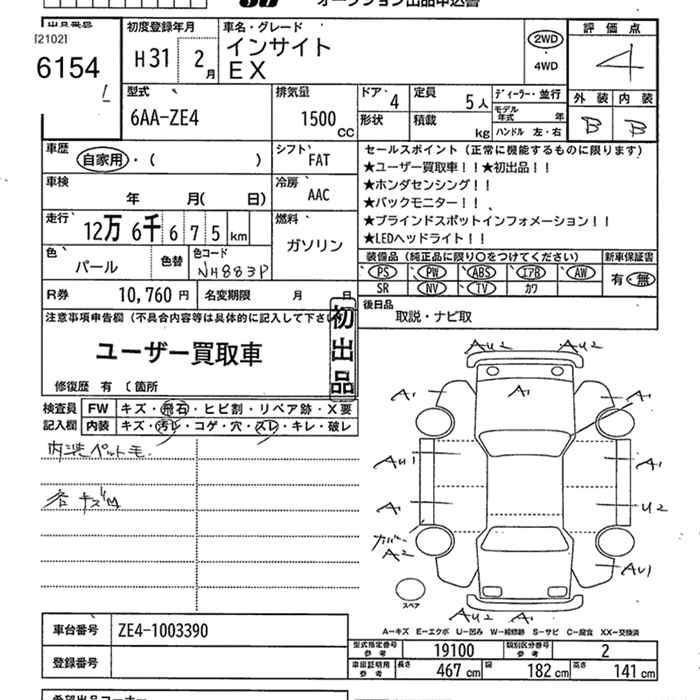 [2102]
6154
初度登録年月
H31 2月
車名・グレード
インサイト
EX
2WD
4WD
評価点
4
外装 内装
B B
型式
6AA-ZE4
排気量
1500 CC
ドア 4
形状
定員 5人
積載 kg
ディーラー・並行
モデル年式 年
ハンドル 左・右
車歴
自家用・( )
シフト
FAT
車検
年 月( 日)
冷房
AAC
走行
12万 6千 6 7 5 km
燃料
ガソリン
色
パール
色替
色コード
NH883P
R券 10,760円
名変期限 月 日
セールスポイント(正常に機能するものに限ります)
★ユーザー買取車!!★初出品!!
★ホンダセンシング!!
★バックモニター!!
★ブラインドスポットインフォメーション!!
★LEDヘッドライト!!
装備品(純正品に限り〇をつけてください)
PS PW ABS エアB AW
SR NV TV カワ
新車保証書
有・無
後日品
取説・ナビ取
注意事項申告欄(不具合内容等は具体的に記入して下さい
初出品
ユーザー買取車
修復歴 有 〔箇所
検査員記入欄
FW キズ・飛石・ヒビ割・リペア跡・X要
内装 キズ・汚レ・コゲ・穴・スレ・キレ・破レ
内装ペット毛.
各キズ凹
AU2 AU2
A1 A1 A1
AU1 A1
A1 U2
カバー
A2
AU1
スペア
AU2 A1
A―キズ E―エクボ U―凹み W―補修跡 S―サビ C―腐食 XX―交換済
車台番号 ZE4-1003390
登録番号
型式指定番号 参考 19100
類別区分番号 参考 2
車庫証明用 参考 長さ 467cm 幅 182cm 高さ 141cm